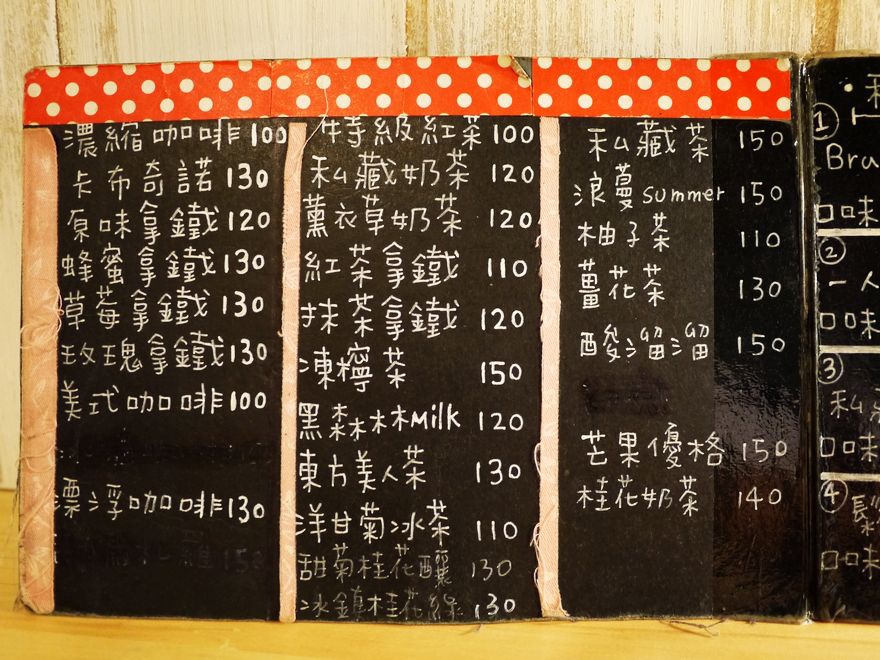 濃縮咖啡100
卡布奇諾130
原味拿鐵120
蜂蜜拿鐵130
草莓拿鐵130
玫瑰拿鐵130
美式咖啡100
漂浮咖啡130
特級紅茶100
私藏奶茶 120
薰衣草奶茶 120
紅茶拿鐵 110
抹茶拿鐵 120
凍檸茶 150
黑森林Milk 120
東方美人茶 130
洋甘菊冰茶 110
甜菊桂花釀 130
冰鎮桂花綠 130
私藏茶 150
浪蔓summer 150
柚子茶 110
薑花茶 130
酸溜溜 150
芒果優格 150
桂花奶茶 140
①
Bru
口味
②
一人
口味
③
私
口味
④
鬆
口味